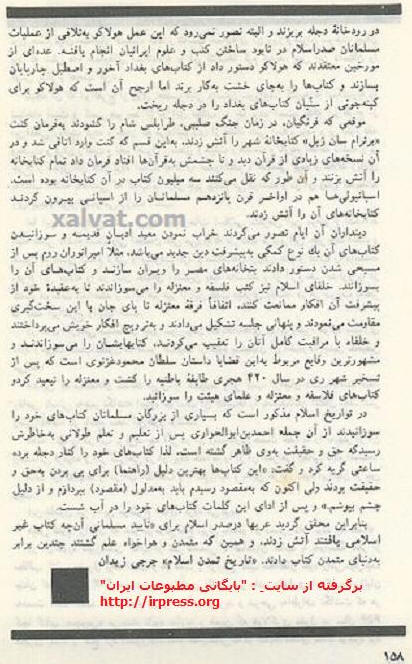 در رودخانهٔ دجله بریزند و البته تصور نمی‌رود که این عمل هولاکو به‌تلافی از عملیات
مسلمانان صدر‌اسلام در نابود ساختن کتب و علوم ایرانیان انجام یافتـه. عده‌ای از
مورخین معتقدند که هولاکو دستور داد از کتاب‌های بغداد آخور و اصطبل چارپایان
بسازند و کتاب‌ها را به‌جای خشت به‌کار برند اما ارجح آن است که هولاکو برای
کینه‌جوئی از سنّیان کتاب‌های بغداد را در دجله ریخت.
موقعی که فرنگیان، در زمان جنگ صلیبی، طرابلس شام را گشودند به‌فرمان کنت
«برترام سان ژیل» کتابخانهٔ شهر را آتش زدند. به‌این قسم که کنت وارد اتاقی شد و در
آن نسخه‌های زیادی از قرآن دید و تا چشمش به‌قرآن‌ها افتاد فرمان داد تمام کتابخانه
را آتش بزنند و آن طور که نقل می‌کنند سه میلیون کتاب در آن کتابخانه بوده است.
اسپانیولی‌ها هم در اواخـر قرن پانزدهم مسلمانـان را از اسپانیـی بیـرون کردنـد
کتابخانه‌های آن را آتش زدند.
xalvat.com
دینداران آن ایام تصور می‌کردند خراب نمودن معبد ادیـان قدیمـه و سوزانیـدن
کتاب‌های آن یك نوع کمکی به‌پیشرفت دین جدید می‌باشد. مثلاً امپراتوران روم پس از
مسیحی شدن دستور دادند بتخانه‌های مصـر را ویـران سازنـد و کتاب‌هـای آن را
بسوزانند. خلفای اسلام نیز کتب فلسفه و معتزله را می‌سوزاندند تا به‌عقیدهٔ خود از
پیشرفت آن افکار ممانعت کنند، اتفاقاً فرقهٔ معتزله تا پای جان با این سخت‌گیری
مقاومت می‌نمودند و پنهانی جلسه تشکیل می‌دادند و به‌ترویج افکار خویش می‌پرداختند
و خلفاء با مراقبت کامل آنان را تعقیب می‌کردنـد، کتابهایشـان را می‌سوزاندنـد و
مشهورترین وقایع مربوط به‌این قضایا داستان سلطان محمودغزنوی است که پس از
تسخیر شهر ری در سال ۴۲۰ هجری طایفهٔ باطنیه را کشت و معتزله را تبعید کردو
کتاب‌های فلاسفه و معتزله و علمای هیئت را سوزانید.
در تواریخ اسلام مذکور است که بسیاری از بزرگان مسلمانان کتاب‌های خود را
سوزانیدند از آن جمله احمدبن‌ابوالحواری پس از تعلیم و تعلم طولانی به‌خاطرش
رسیدکه حق و حقیقت به‌وی ظاهر گشته است. لذا کتاب‌های خود را کنار دجله برده
ساعتی گریه کرد و گفت: «این کتاب‌ها بهترین دلیل (راهنما) برای پی بردن به‌حق و
حقیقت بودند ولی اکنون که به‌مقصود رسیدم باید به‌مدلول (مقصود) بپردازم و از دلیل
چشم بپوشم.» و پس از ادای این کلمات کتاب‌های خود را در آب شست.
بنابراین محقق گردید عربها درصدر اسلام برای «تأیید مسلمانی آن‌چه کتاب غیر
اسلامی یافتند آتش زدند، و همین که متمدن و هواخواه علم گشتند چندین برابر
به‌دنیای متمدن کتاب دادند. «تاریخ تمدن اسلام» جرجی زیدان
برگرفته از سایت : "بایگانی مطبوعات ایران"
http://irpress.org
۱۵۸